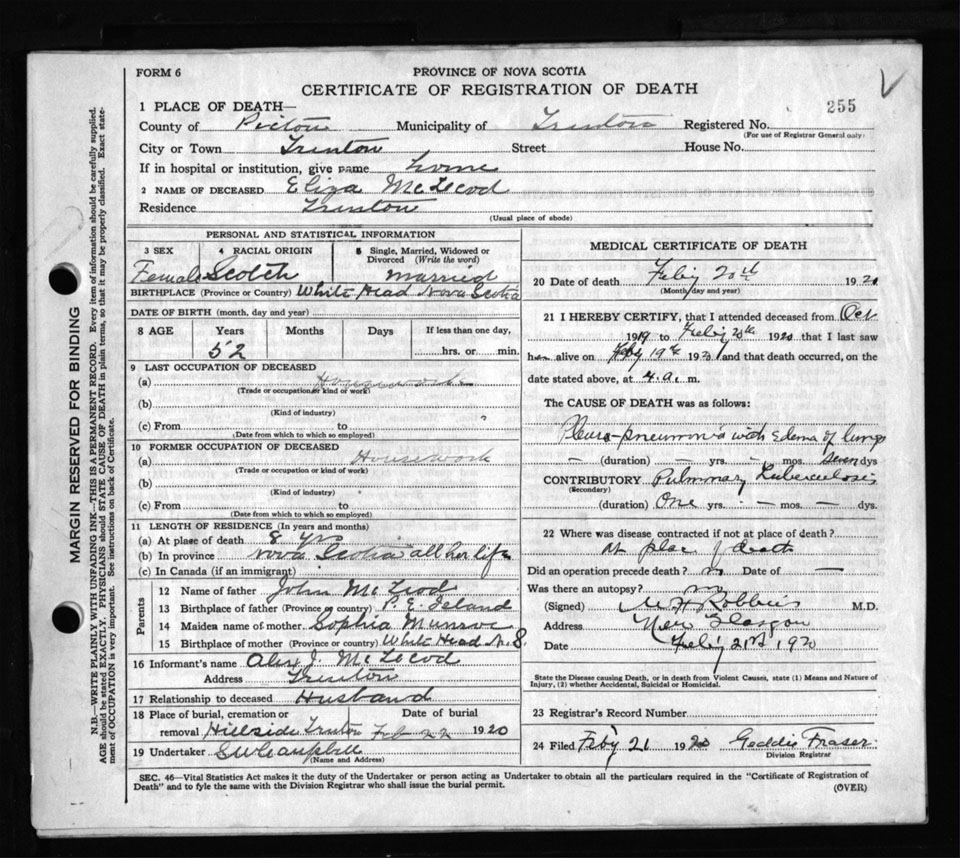 FORM 6
PROVINCE OF NOVA SCOTIA
CERTIFICATE OF REGISTRATION OF DEATH
255
1 PLACE OF DEATH—
County of Pictou Municipality of Trenton Registered No.
(For use of Registrar General only)
City or Town Trenton Street House No.
If in hospital or institution, give name home
2 NAME OF DECEASED Eliza McLeod
Residence Trenton
(Usual place of abode)
PERSONAL AND STATISTICAL INFORMATION
3 SEX 4 RACIAL ORIGIN 5 Single, Married, Widowed or Divorced (Write the word)
Female Scotch married
BIRTHPLACE (Province or Country) White Head Nova Scotia
DATE OF BIRTH (month, day and year)
8 AGE Years Months Days If less than one day,
52 hrs. or min.
9 LAST OCCUPATION OF DECEASED
(a) Housework
(Trade or occupation or kind of work)
(b)
(Kind of industry)
(c) From to
(Date from which to which so employed)
10 FORMER OCCUPATION OF DECEASED
(a) Housework
(Trade or occupation or kind of work)
(b)
(Kind of industry)
(c) From to
(Date from which to which so employed)
11 LENGTH OF RESIDENCE (In years and months)
(a) At place of death 8 yrs
(b) In province Nova Scotia all her life
(c) In Canada (if an immigrant)
Parents
12 Name of father John McLeod
13 Birthplace of father (Province or country) P. E. Island
14 Maiden name of mother Sophia Munroe
15 Birthplace of mother (Province or country) White Head N. S.
16 Informant's name Alex J. McLeod
Address Trenton
17 Relationship to deceased Husband
18 Place of burial, cremation or removal Hillside Trenton Date of burial Feb 22 1920
19 Undertaker S W Campbell
(Name and Address)
MEDICAL CERTIFICATE OF DEATH
20 Date of death Feb'y 20th 1920
(Month day and year)
21 I HEREBY CERTIFY, that I attended deceased from Oct
1919 to Feb'y 20th 1920 that I last saw
her alive on Feby 19th 1920 and that death occurred, on the
date stated above, at 4 a. m.
The CAUSE OF DEATH was as follows:
Pleuro-pneumonia with edema of lungs
— (duration) — yrs. — mos. seven dys
CONTRIBUTORY Pulmonary Tuberculosis
(Secondary)
(duration) One yrs. — mos. — dys.
22 Where was disease contracted if not at place of death?
At place of death
Did an operation precede death? no Date of —
Was there an autopsy? no
(Signed) Robbins M.D.
Address New Glasgow
Date Feb'y 21st 1920
State the Disease causing Death, or in death from Violent Causes, state (1) Means and Nature of
Injury, (2) whether Accidental, Suicidal or Homicidal.
23 Registrar's Record Number
24 Filed Feby 21 1920 Geddie Fraser
Division Registrar
SEC. 46—Vital Statistics Act makes it the duty of the Undertaker or person acting as Undertaker to obtain all the particulars required in the "Certificate of Registration of
Death" and to fyle the same with the Division Registrar who shall issue the burial permit.
(OVER)
MARGIN RESERVED FOR BINDING
N.B.—WRITE PLAINLY WITH UNFADING INK—THIS IS A PERMANENT RECORD. Every item of information should be carefully supplied.
AGE should be stated EXACTLY. PHYSICIANS should STATE CAUSE OF DEATH in plain terms, so that it may be properly classified. Exact state-
ment of OCCUPATION is very important. See instructions on back of Certificate.